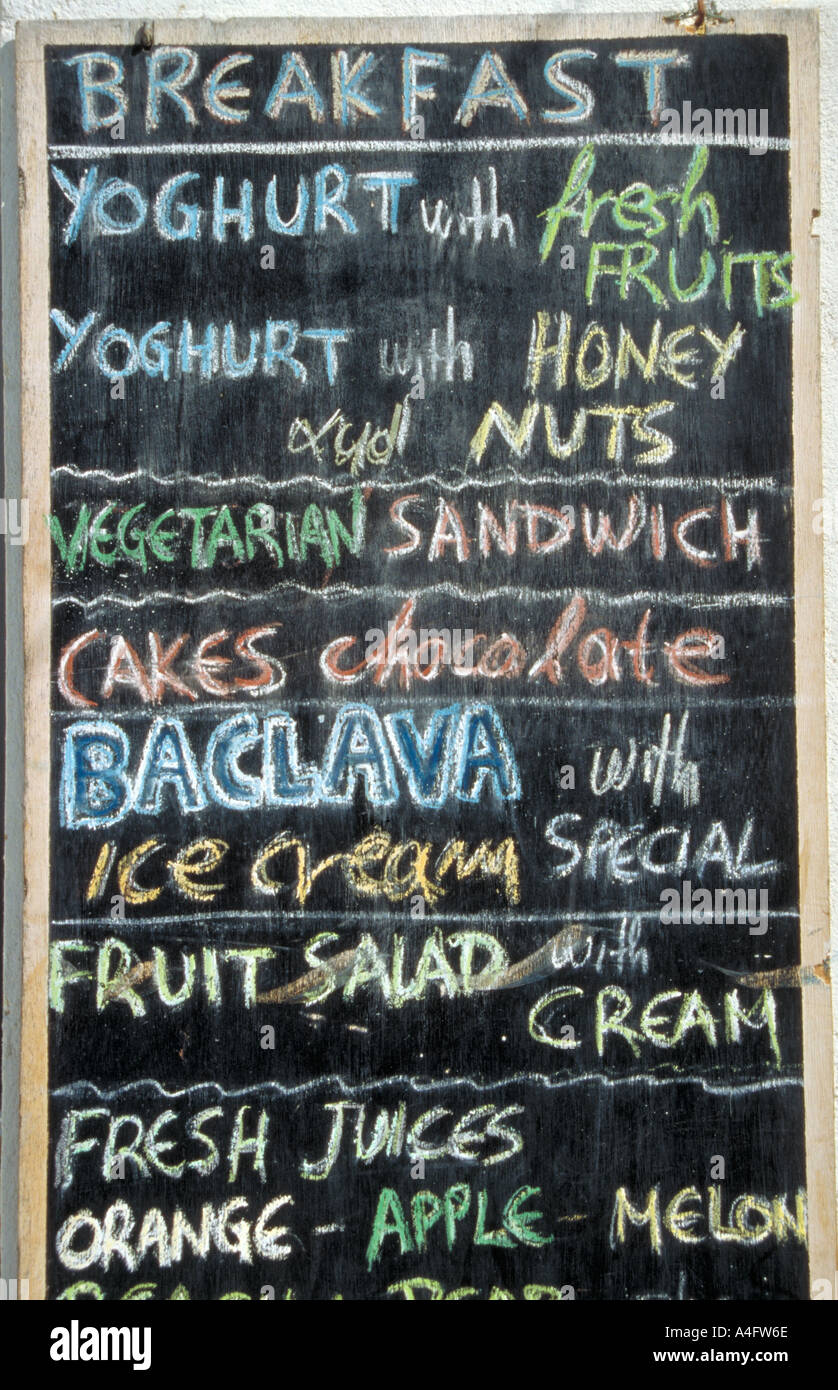 BREAKFAST
YOGHURT with fresh
FRUiTS
YOGHURT with HONEY
αyd NUTS
VEGETARIAN SANDWICH
CAKES chocolate
BACLAVA with
ice cream SPECIAL
FRUIT SALAD with
CREAM
FRESH JUICES
ORANGE - APPLE - MELON
alamy
Image ID: A4FW6E
www.alamy.com